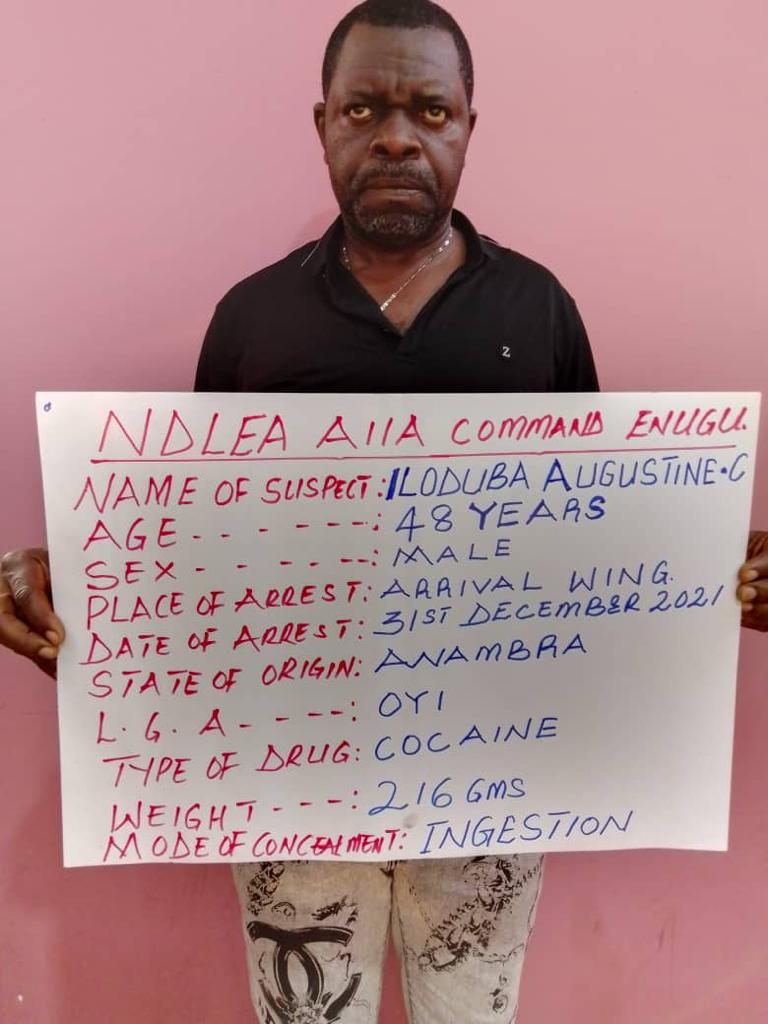 Z
NDLEA AIIA COMMAND ENUGU.
NAME OF SUSPECT: ILODUBA AUGUSTINE.C
AGE - - - - - - -: 48 YEARS
SEX - - - - - - --: MALE
PLACE OF ARREST: ARRIVAL WING.
DATE OF ARREST: 31ST DECEMBER 2021
STATE OF ORIGIN: ANAMBRA
L. G. A - - - --: OYI
TYPE OF DRUG: COCAINE
WEIGHT - - -: 216 GMS
MODE OF CONCEALMENT: INGESTION